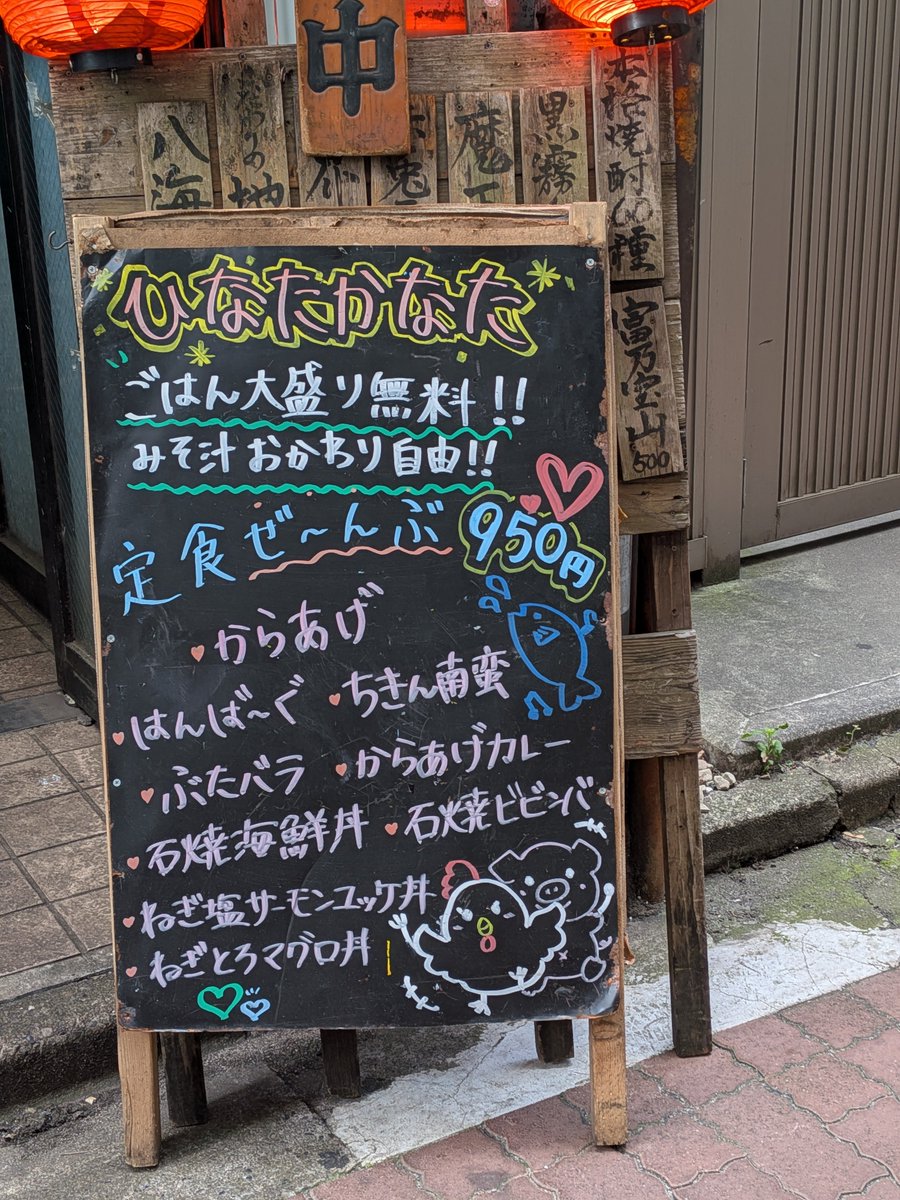 中
八海
おすすめの地
魔王
黒霧
本格焼酎60種
富乃宝山
500
ひなたかなた
ごはん大盛り無料!!
みそ汁おかわり自由!!
定食ぜ〜んぶ 950円
からあげ
はんば〜ぐ ちきん南蛮
ぶたバラ からあげカレー
石焼海鮮丼 石焼ビビンバ
ねぎ塩サーモンユッケ丼
ねぎとろマグロ丼